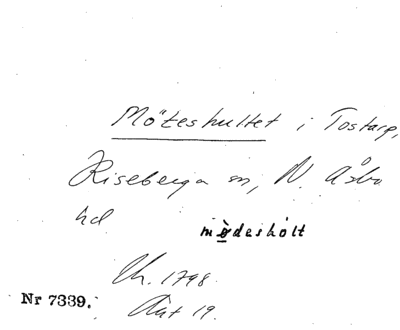 Möteshultet i Tostarp,
Riseberga sn, N. Åsbo
hd
mødeshòlt
Uh. 1798.
Akt 19.
Nr 7339.